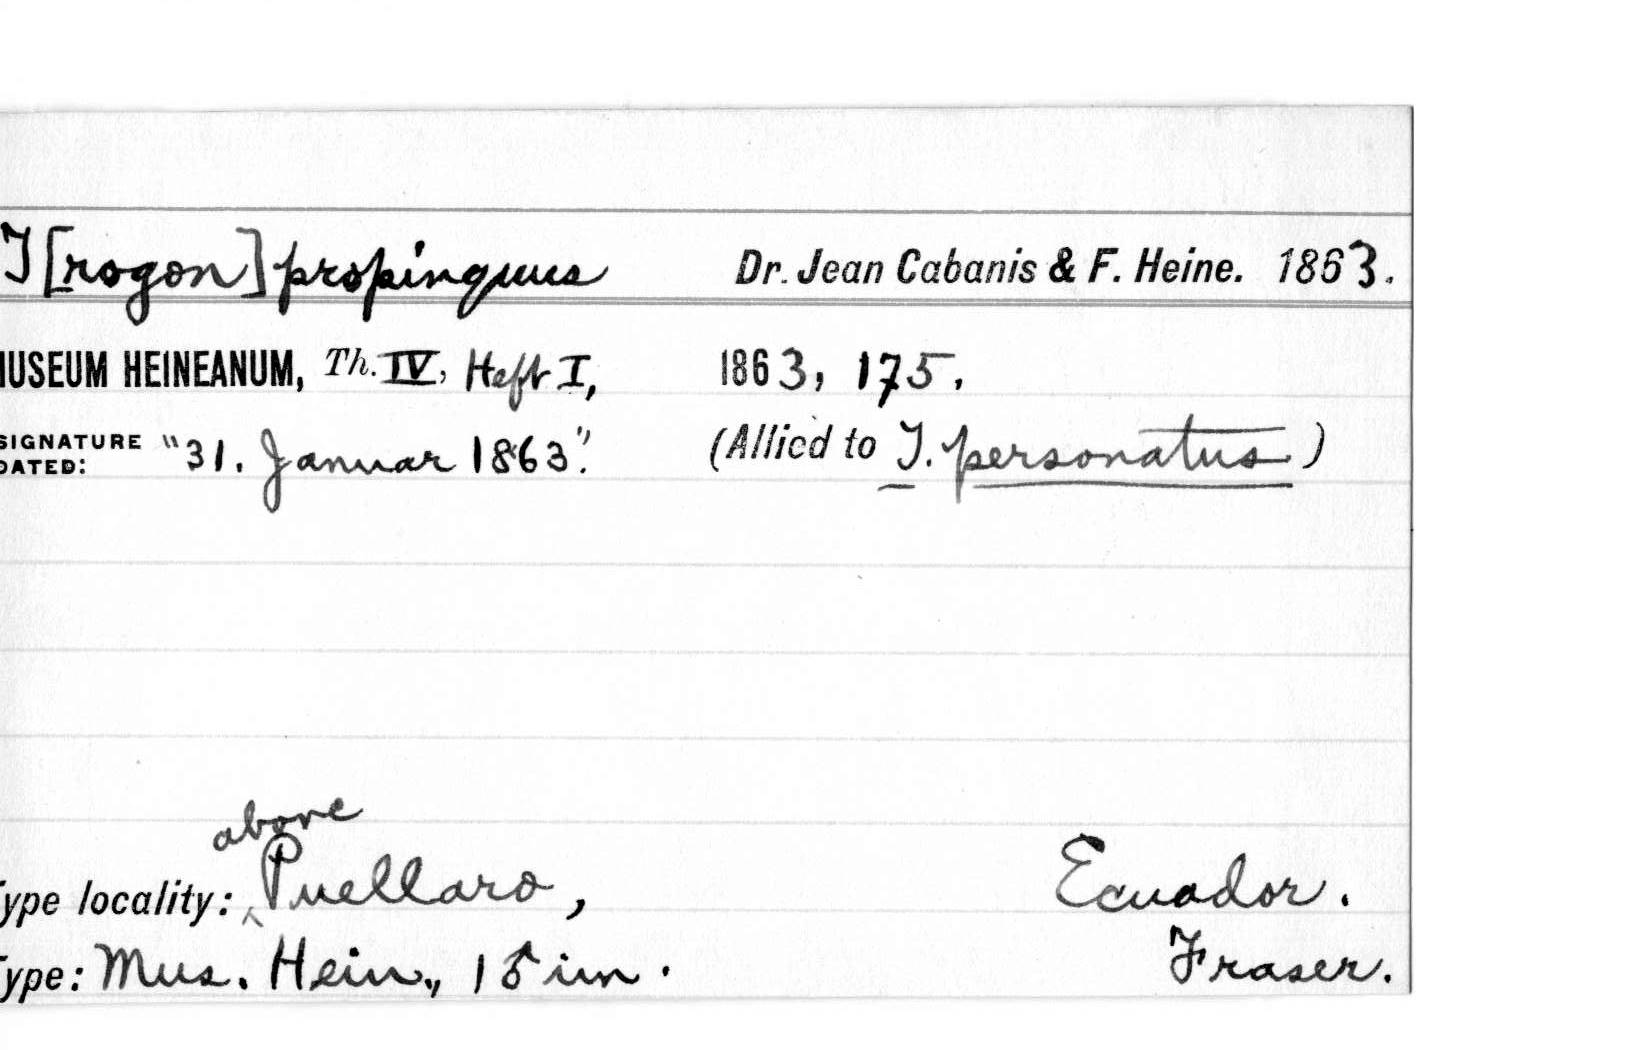 T[rogon] propinquus Dr. Jean Cabanis & F. Heine. 1863.
MUSEUM HEINEANUM, Th. IV, Heft I, 1863, 175.
SIGNATURE DATED: "31. Januar 1863". (Allied to T. personatus)
above
Type locality: ^Puellaro, Ecuador.
Type: Mus. Hein., 1 ♂ im. Fraser.